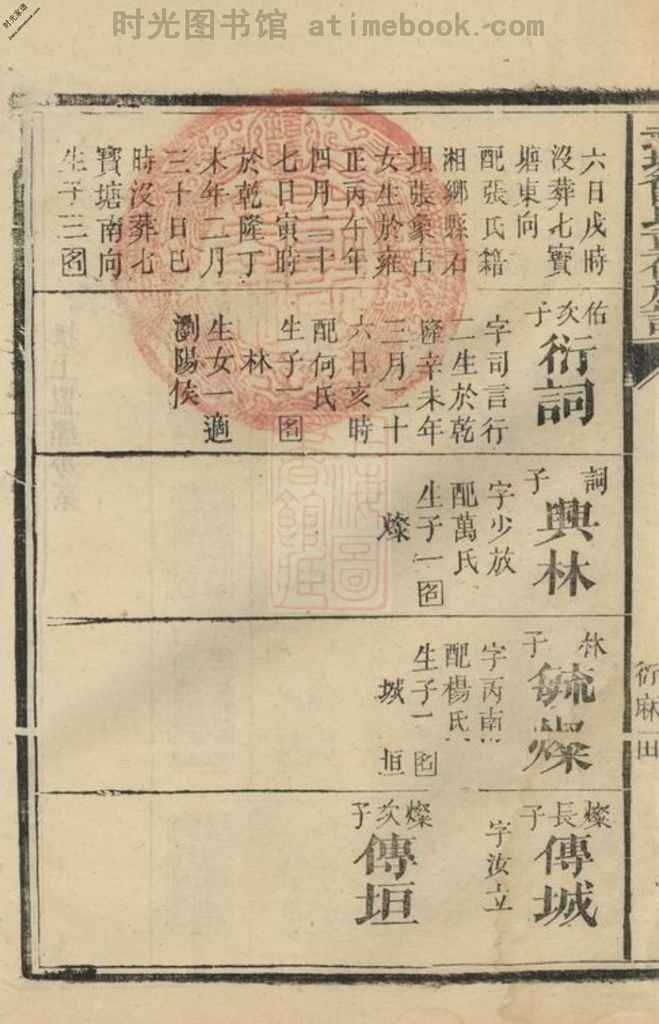 时光图书馆 atimebook.com
时光家谱
六日戌時
沒葬七寶
塘東向
配張氏籍
湘鄉縣石
垻張象古
女生於雍
正丙午年
四月二十
七日寅時
於乾隆丁
未年二月
三十日巳
時沒葬七
寶塘南向
生子三名
佑次子
衍詞
字司言行
二生於乾
隆辛未年
三月二十
六日亥時
配何氏
生子一名
林
生女一適
瀏陽侯
詞子
興林
字少放
配萬氏
生子一名
燦
林子
毓燦
字丙南
配楊氏
生子二名
城 垣
燦長子
傳城
字汝立
燦次子
傳垣
衍麻田